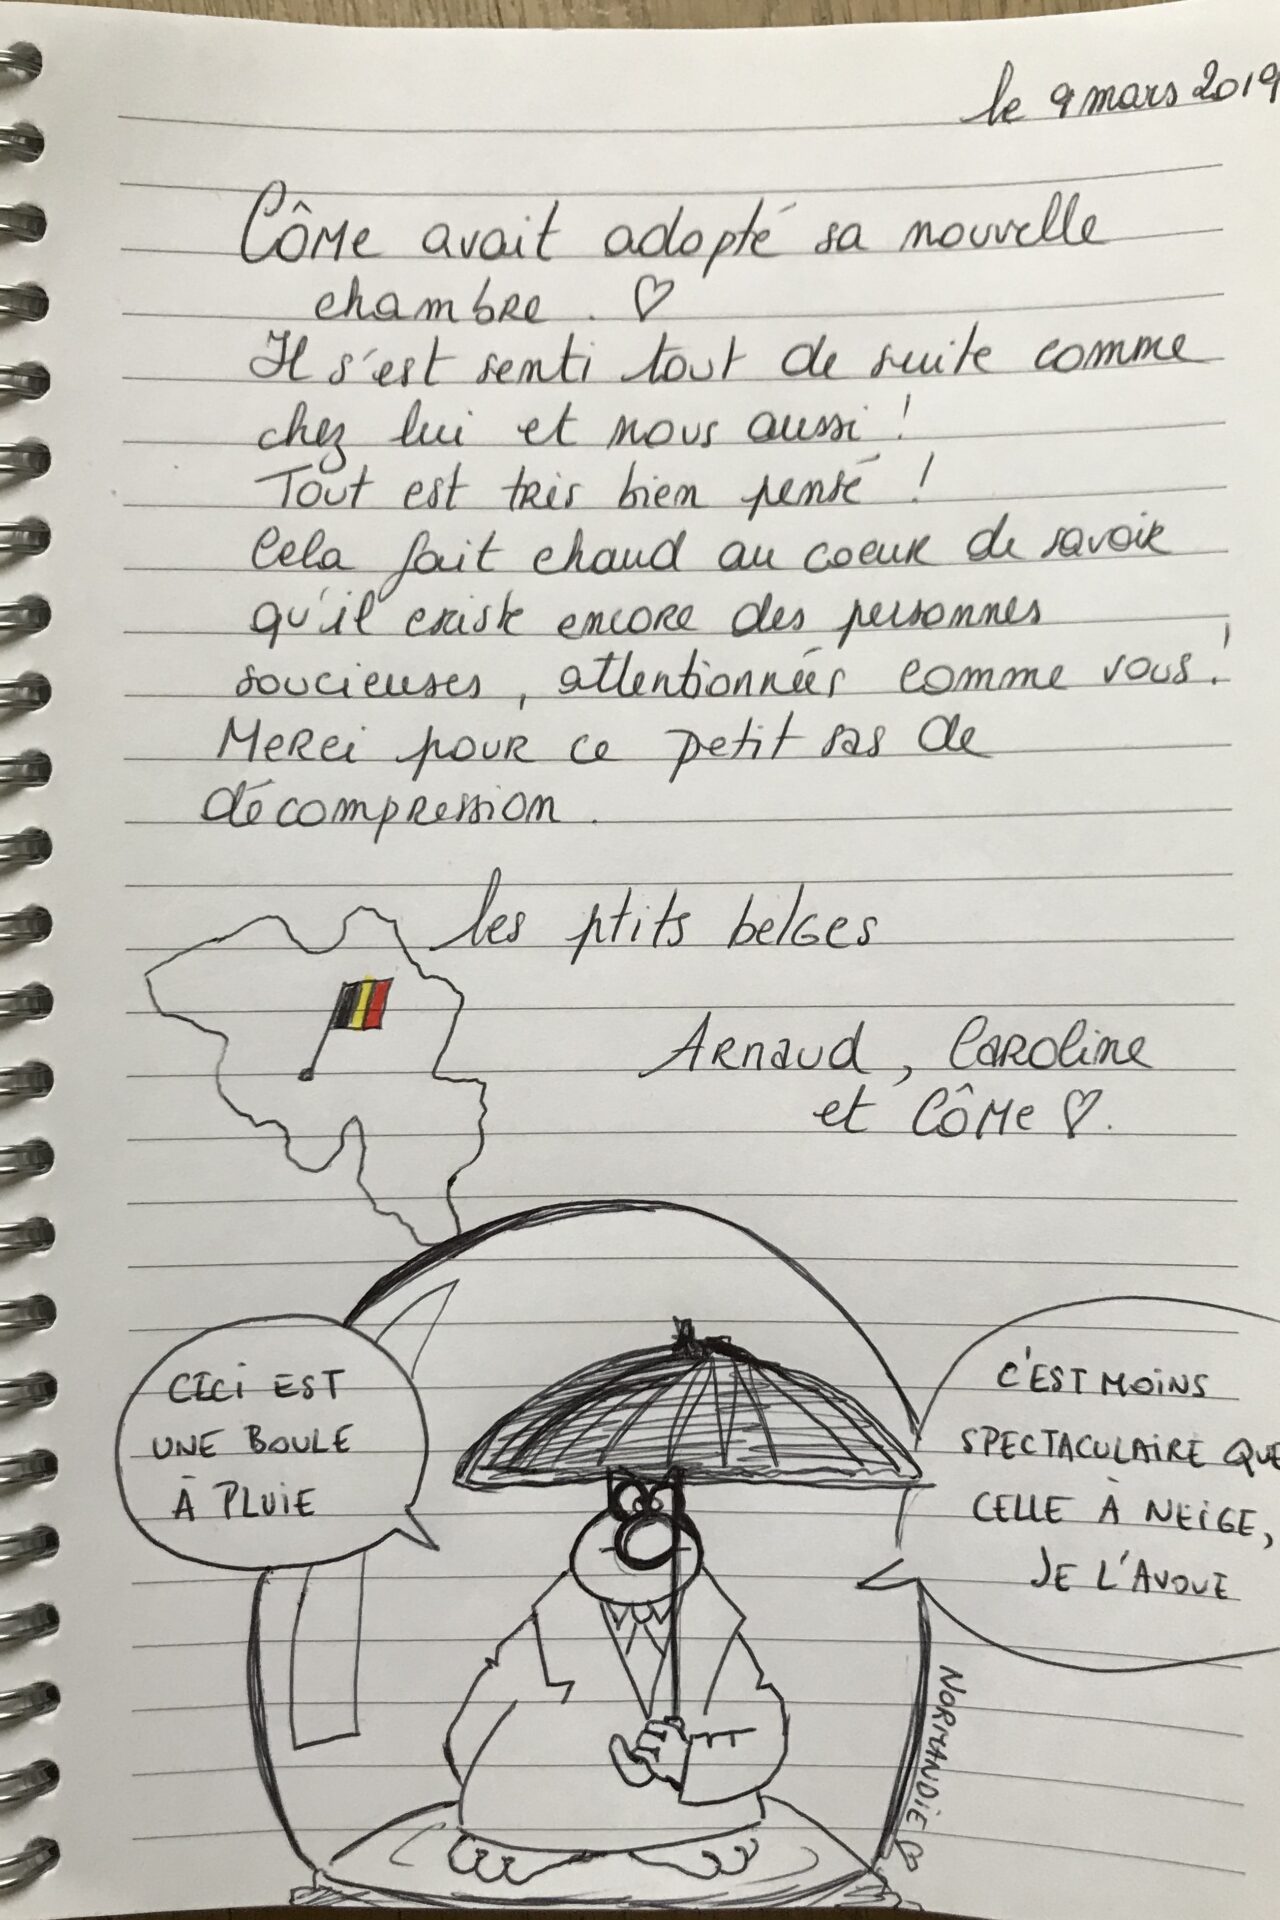 le 9 mars 2019
Côme avait adopté sa nouvelle
chambre. ♡
Il s'est senti tout de suite comme
chez lui et nous aussi !
Tout est très bien pensé !
Cela fait chaud au coeur de savoir
qu'il existe encore des personnes
soucieuses, attentionnées comme vous !
Merci pour ce petit sas de
décompression.
les ptits belges
Arnaud, Caroline
et Côme ♡.
CECI EST
UNE BOULE
À PLUIE
C'EST MOINS
SPECTACULAIRE QUE
CELLE À NEIGE,
JE L'AVOUE
NORMANDIE ♡